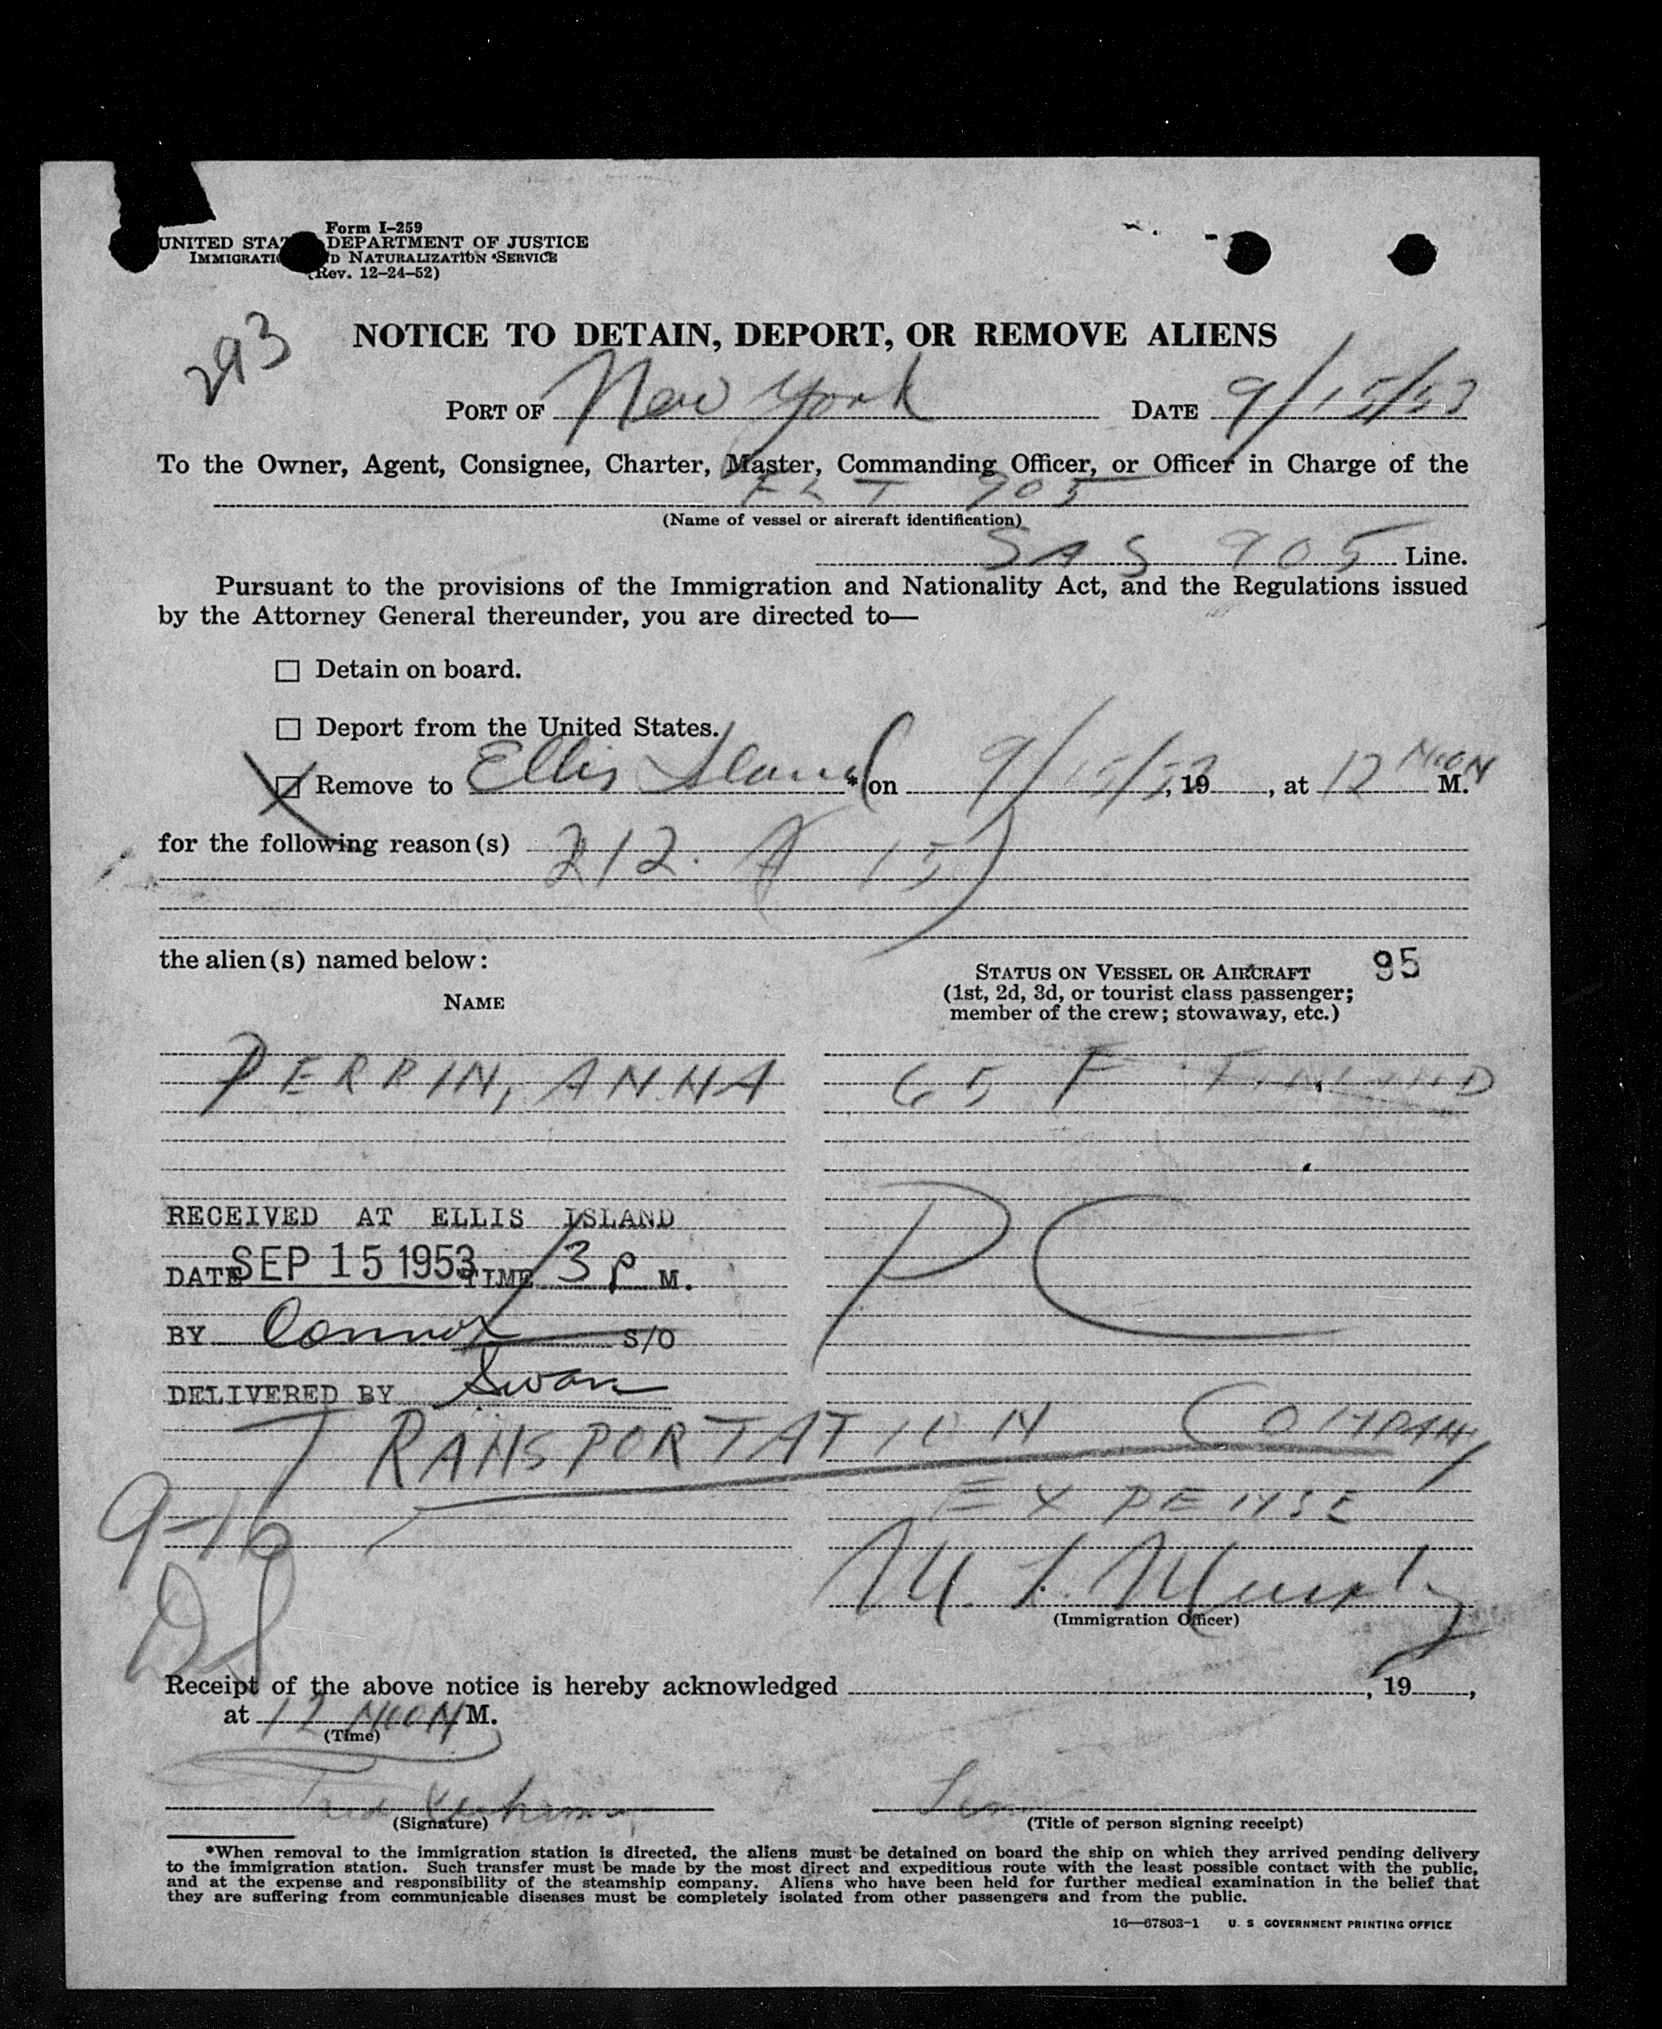 Form I-259
UNITED STA DEPARTMENT OF JUSTICE
IMMIGRATI D NATURALIZATION SERVICE
(Rev. 12-24-52)
293
NOTICE TO DETAIN, DEPORT, OR REMOVE ALIENS
PORT OF New York DATE 9/15/53
To the Owner, Agent, Consignee, Charter, Master, Commanding Officer, or Officer in Charge of the
FLT 905
(Name of vessel or aircraft identification)
SAS 905 Line.
Pursuant to the provisions of the Immigration and Nationality Act, and the Regulations issued
by the Attorney General thereunder, you are directed to—
☐ Detain on board.
☐ Deport from the United States.
☒ Remove to Ellis Island * on 9/15/53, 19, at 12 NOON M.
for the following reason(s) 212. A 15)
the alien(s) named below:
95
STATUS ON VESSEL OR AIRCRAFT
(1st, 2d, 3d, or tourist class passenger;
member of the crew; stowaway, etc.)
NAME
PERRIN, ANNA 65 F FINLAND
RECEIVED AT ELLIS ISLAND
PC
DATE SEP 15 1953 TIME 3 P M.
BY Connor S/O
DELIVERED BY Swan
TRANSPORTATION COMPANY
EXPENSE
9-16
M. L. Murphy
(Immigration Officer)
Receipt of the above notice is hereby acknowledged , 19 ,
at 12 NOON M.
(Time)
(Signature) (Title of person signing receipt)
*When removal to the immigration station is directed, the aliens must be detained on board the ship on which they arrived pending delivery
to the immigration station. Such transfer must be made by the most direct and expeditious route with the least possible contact with the public,
and at the expense and responsibility of the steamship company. Aliens who have been held for further medical examination in the belief that
they are suffering from communicable diseases must be completely isolated from other passengers and from the public.
16—67803-1 U. S. GOVERNMENT PRINTING OFFICE